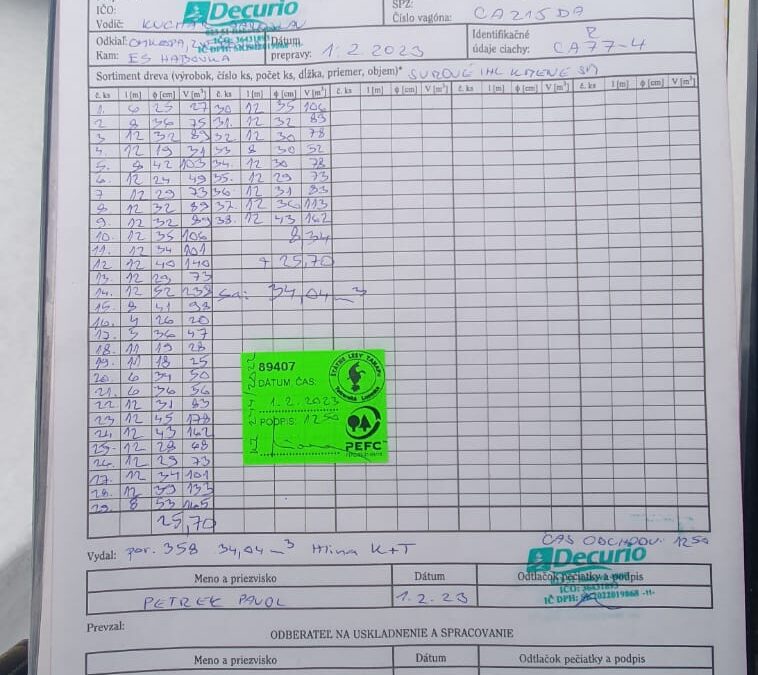 IČO: Decurio ŠPZ:
Vodič: Číslo vagóna: CA215DA
Odkiaľ: Dátum Identifikačné
Kam: ES HABOVKA prepravy: 1.2.2023 údaje ciachy: CA77-4
Sortiment dreva (výrobok, číslo ks, počet ks, dĺžka, priemer, objem)* SUROVÉ IHL KMENE
č. ks l [m] φ [cm] V [m³] č. ks l [m] φ [cm] V [m³] č. ks l [m] φ [cm] V [m³] č. ks l [m] φ [cm] V [m³] č. ks l [m] φ [cm] V [m³]
1. 6 25 27 30 12 35 106
2 8 36 75 31. 12 32 89
3 12 32 89 32. 12 30 78
4. 12 19 31 33 8 30 52
5. 8 42 103 34. 12 30 78
6. 12 24 49 35. 12 29 73
7 12 29 73 36. 12 31 83
8 12 32 89 37. 12 36 113
9. 12 32 89 38. 12 43 162
10. 12 35 106 8 34
11. 12 34 101
12 12 40 140 + 25,70
13. 12 29 73
14. 12 52 238 Sa: 34,04 m³
15. 8 41 98
16. 4 26 20
17. 5 36 47
18. 11 19 28
19. 11 18 25
20. 6 34 50
21. 6 36 56
22 12 31 83
23 12 45 178
24 12 43 162
25. 12 28 68
26. 12 29 73
27. 12 34 101
28. 12 39 133
29. 8 53 165
25,70
89407
ŠTÁTNE LESY TANAPU
Tatranská Lomnica
DÁTUM ČAS:
1.2.2023
PODPIS: 1250
PEFC
ČAS ODCHODU. 1250
Vydal: por. 358 34,04 m³ Hlina K+T
Decurio
Meno a priezvisko Dátum Odtlačok pečiatky a podpis
IČO: 36431893
PETREK PAVOL 1.2.23 IČ DPH: SK2022019868 -11-
Prevzal:
ODBERATEĽ NA USKLADNENIE A SPRACOVANIE
Meno a priezvisko Dátum Odtlačok pečiatky a podpis